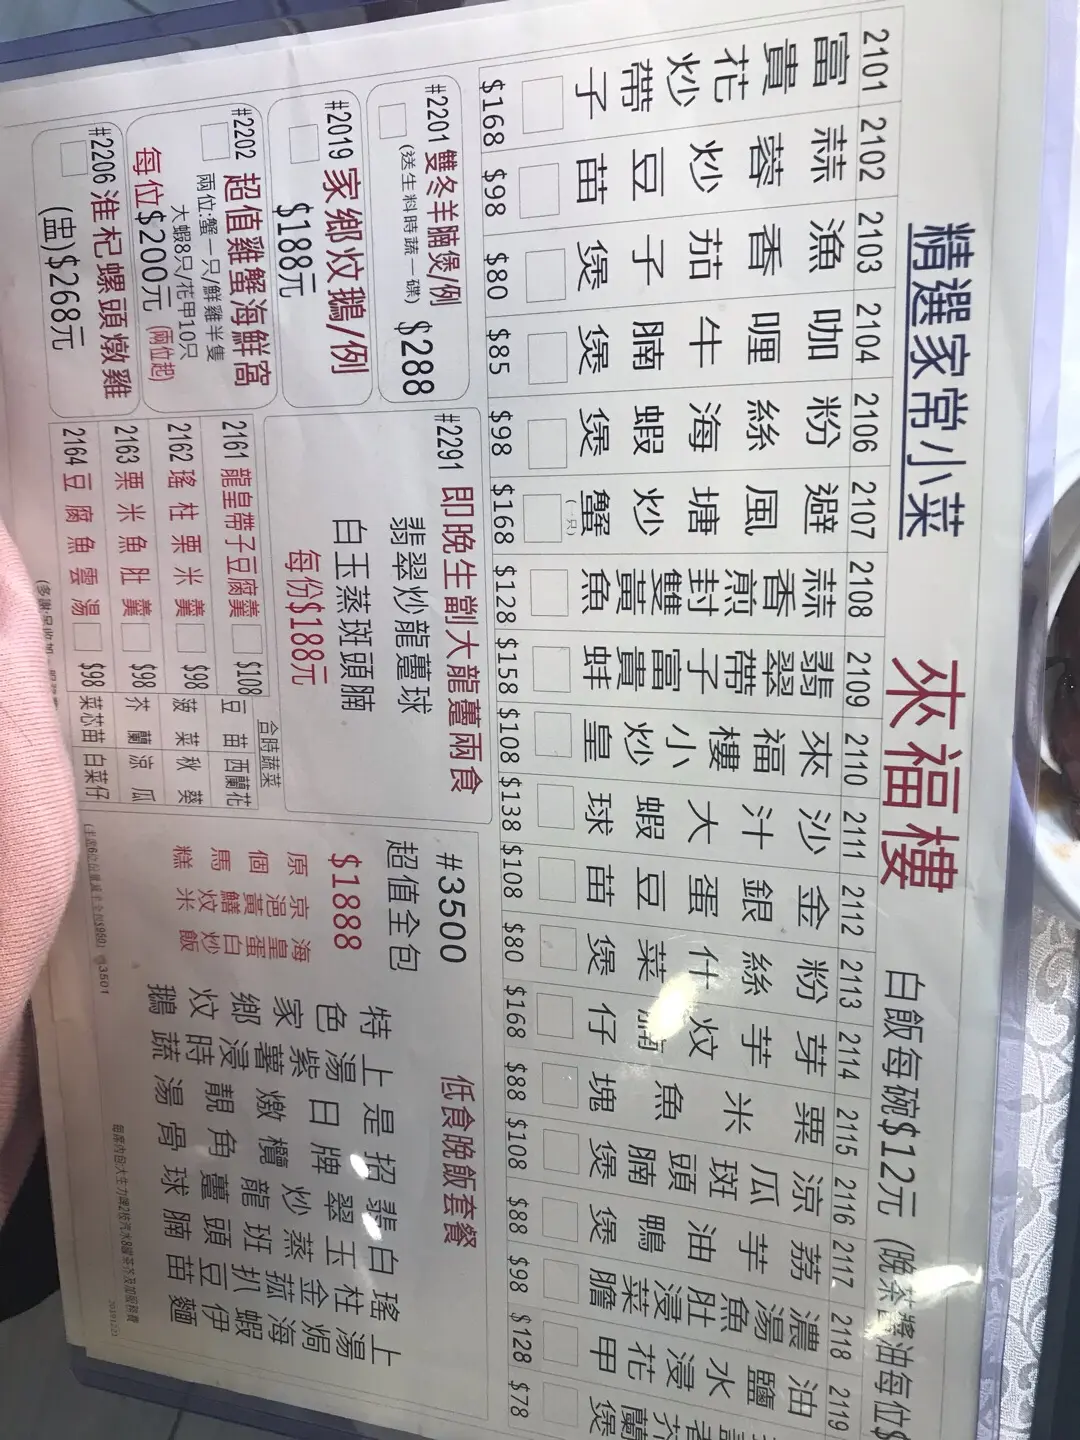 精選家常小菜 來福樓 白飯每碗$12元 (晚茶醬油每位$
2101 富貴花炒帶子 $168
2102 蒜蓉炒豆苗 $98
2103 漁香茄子煲 $80
2104 咖喱牛腩煲 $85
2106 粉絲海蝦煲 $98
2107 避風塘炒蟹 (一只) $168
2108 蒜香煎封雙黃魚 $128
2109 翡翠帶子富貴蚌 $158
2110 來福樓小炒皇 $108
2111 沙汁大蝦球 $138
2112 金銀蛋豆苗 $108
2113 粉絲什菜煲 $80
2114 芽芋炆腩仔 $168
2115 粟米魚塊 $88
2116 涼瓜斑頭腩煲 $108
2117 荔芋油鴨煲 $88
2118 濃湯魚肚浸菜膽 $98
2119 油鹽水浸花甲 $128
啫芥蘭煲 $78
#2201 雙冬羊腩煲/例
(送生料時蔬一碟) $288
#2019 家鄉炆鵝/例
$188元
#2202 超值雞蟹海鮮窩
兩位:蟹一只/鮮雞半隻
大蝦8只/花甲10只
每位$200元 (兩位起)
#2206 淮杞螺頭燉雞
(盅)$268元
#2291 即晚生劏大龍躉兩食
翡翠炒龍躉球
白玉蒸斑頭腩
每份$188元
2161 龍皇帶子豆腐羹 $108
2162 瑤柱粟米羹 $98
2163 粟米魚肚羹 $98
2164 豆腐魚雲湯 $98
合時蔬菜
豆苗 西蘭花
菠菜 秋葵
芥蘭 涼瓜
菜芯苗 白菜仔
#3500 低食晚飯套餐
超值全包
$1888
特色家鄉炆鵝
上湯紫薯浸時蔬
是日燉靚湯
招牌欖角骨
翡翠炒龍躉球
白玉蒸班頭腩
瑤柱金菰扒豆苗
上湯焗海蝦伊麵
海皇蛋白炒飯
原個馬糕
3501